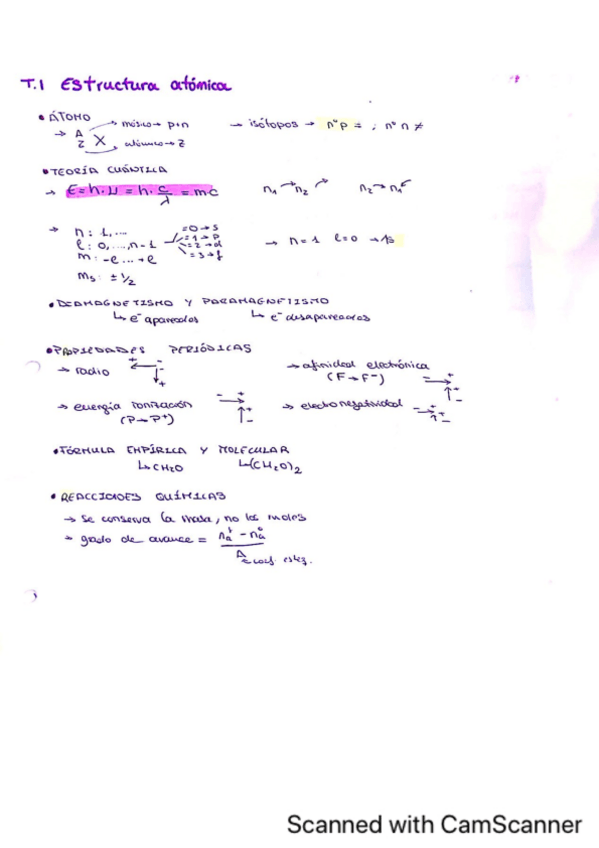 T.1 Estructura atómica
• ÁTOMO
→ A Z X másico → p+n
atómico → Z
→ isótopos → nº p = ; nº n ≠
• TEORÍA CUÁNTICA
→ E = h·ν = h· c/λ = mc
n₁ → n₂ n₂ → n₁
→ n: 1, ...
l: 0, ..., n-1
=0→s
=1→p
=2→d
=3→f
m: -l ... +l
ms: ± 1/2
→ n=1 l=0 → 1s
• DIAMAGNETISMO Y PARAMAGNETISMO
↳ e⁻ apareados ↳ e⁻ desapareados
• PROPIEDADES PERIÓDICAS
→ radio + ← - ↓ +
→ afinidad electrónica
(F → F⁻) - → + ↑ + -
→ energía ionización
(P → P⁺) - → + ↑ + -
→ electronegatividad - → + ↑ + -
• FÓRMULA EMPÍRICA Y MOLECULAR
↳ CH₂O ↳ (CH₂O)₂
• REACCIONES QUÍMICAS
→ Se conserva la masa, no los moles
→ grado de avance =
A
coef. esteq.
Scanned with CamScanner